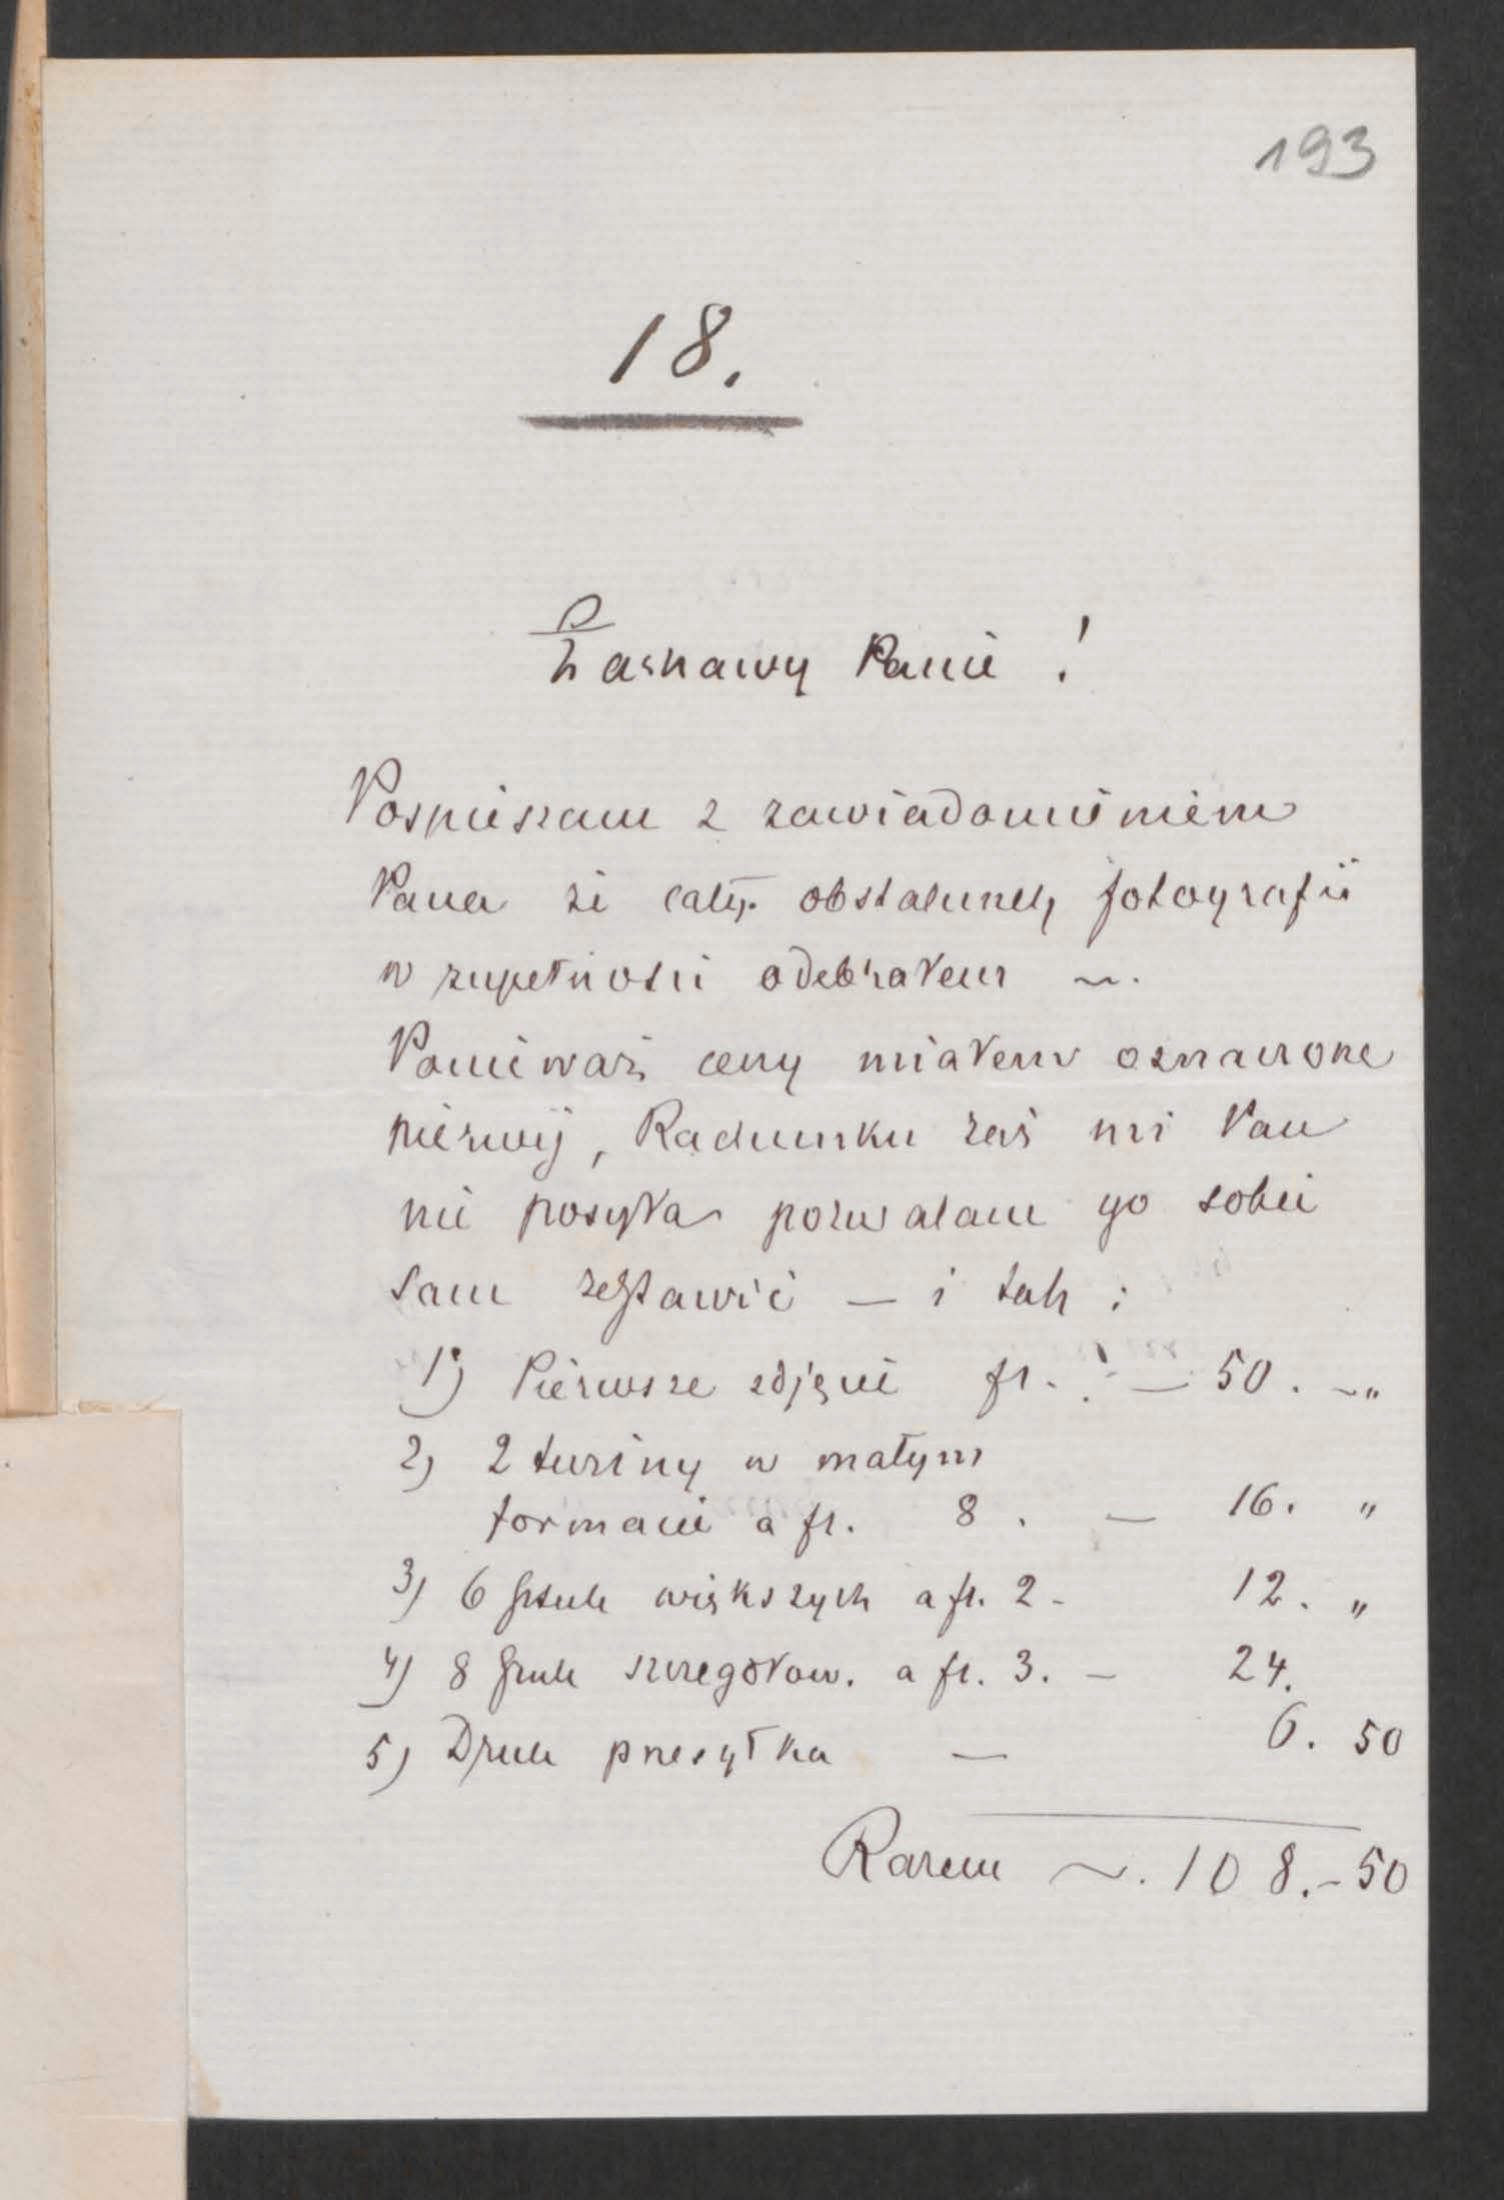 193
18.
Łaskawy Panie !
Pospieszam z zawiadomieniem
Pana że cały obstalunek fotografii
w zupełności odebrałem ~.
Ponieważ ceny miałem oznaczone
pierwij, Rachunku zaś mi Pan
nie posyła pozwalam go sobie
sam zestawić — i tak :
1) Pierwsze zdjęcie fr. — 50. -"
2) 2 tuziny w małym
formacie a fr. 8. — 16. "
3) 6 sztuk większych a fr. 2 - 12. "
4) 8 sztuk szczegółow. a fr. 3. — 24.
5) Druk przesyłka — 6. 50
Razem ~. 108.-50